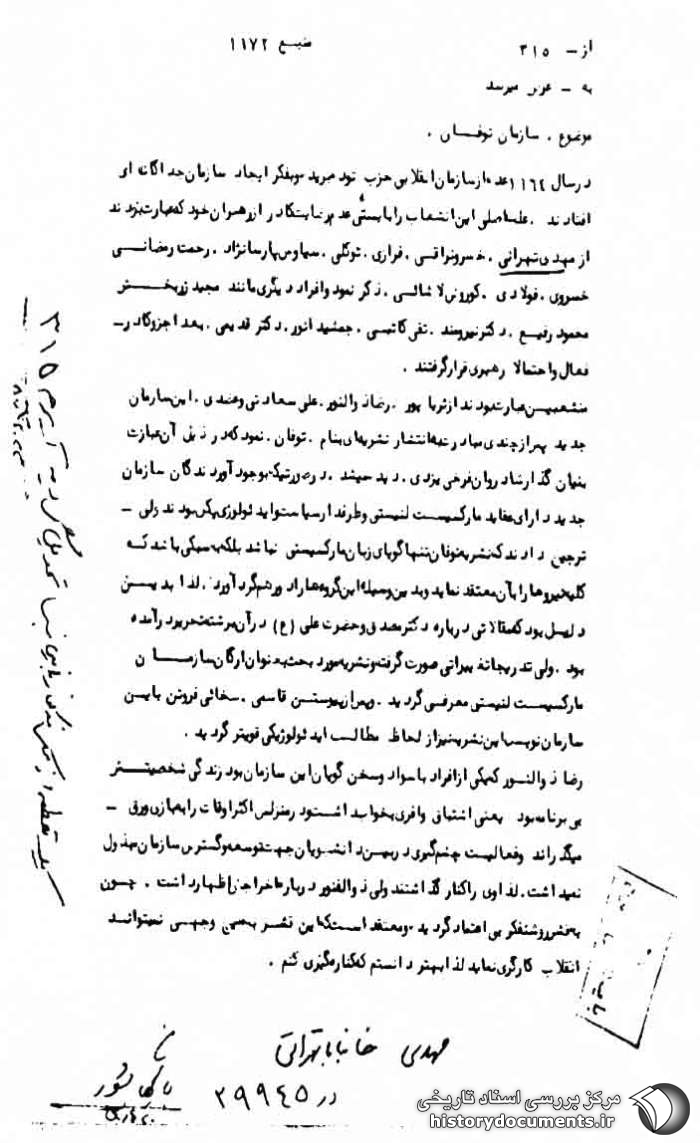 از – ۳۱۵ منبع ۱۱۷۲
به – عرض میرسد
موضوع . سازمان توفان .
در سال ۱۹۶۴ عده از سازمان انقلابی حزب توده بفکر ایجاد سازمان جداگانه ای
افتادند . علت اصلی این انشعاب را بایستی عدم رضایت کادر از رهبران خود که عبارت بودند
از مهدی تهرانی . خسرو نراقی . فراری . توکلی . سیاوس پارسانژاد . رحمت رمضانی
خسروی . فولادی . کوروش لاشائی . ذکر نمود و افراد دیگری مانند مجید زربخش
محمود رفیع . دکتر نیرومند . تقی کاتبی . جمشید انور . دکتر قدیمی . بعدا جزو کادر –
فعال و احتمالا رهبری قرار گرفتند .
منشعبین عبارت بودند از ثریا پور . رضا ذوالنور . علی سعادتی و عضدی . این سازمان
جدید پس از چندی مبادرت به انتشار نشریه ای بنام . توفان . نمود که در ذیل آن عبارت
بنیان گذار شادروان فرخی یزدی . دیده میشد . در صورتیکه بوجود آورندگان سازمان
جدید دارای عقاید مارکسیست لنیستی و طرفدار سیاست و ایدئولوژی پکن بودند ولی –
ترجیح دادند که نشریه توفان تنها گویای زبان مارکسیستی نباشد بلکه به سبکی باشد که
کلیه نیروها را بآن معتقد نماید و بدین وسیله این گروه ها را دور هم گرد آورد . لذا بدین
دلیل بود که مقالاتی درباره دکتر مصدق و حضرت علی (ع) در آن برشته تحریر درآمده
بود . ولی تدریجا تغییراتی صورت گرفته و نشریه مورد بحث بعنوان ارگان سازمان
مارکسیست لنیستی معرفی گردید . و پس از پیوستن قاسمی . سغائی فروتن باین
سازمان نویسها این نشریه نیز از لحاظ مطالب ایدئولوژیکی قویتر گردید .
رضا ذوالنور که یکی از افراد باسواد و سخن گویان این سازمان بود زندگی شخصیش
بی برنامه بود یعنی اشتیاق وافری بخواب داشت و در منزلش اکثر اوقات را به بازی ورق –
میگذراند و فعالیت چشم گیری در بین دانشجویان جهت توسعه و گسترش سازمان مبذول
نمیداشت . لذا وی را کنار گذاشتند ولی ذوالفنور درباره اخراجش اظهار داشت . چون
به قشر روشنفکر بی اعتماد گردیده و معتقد است که این قشر به هیچ وجهی نمیتواند
انقلاب کارگری نماید لذا بهتر دانستم که کناره گیری کنم .
مهدی خانبابا تهرانی
در ۲۹۹۴۵
مرکز بررسی اسناد تاریخی
historydocuments.ir